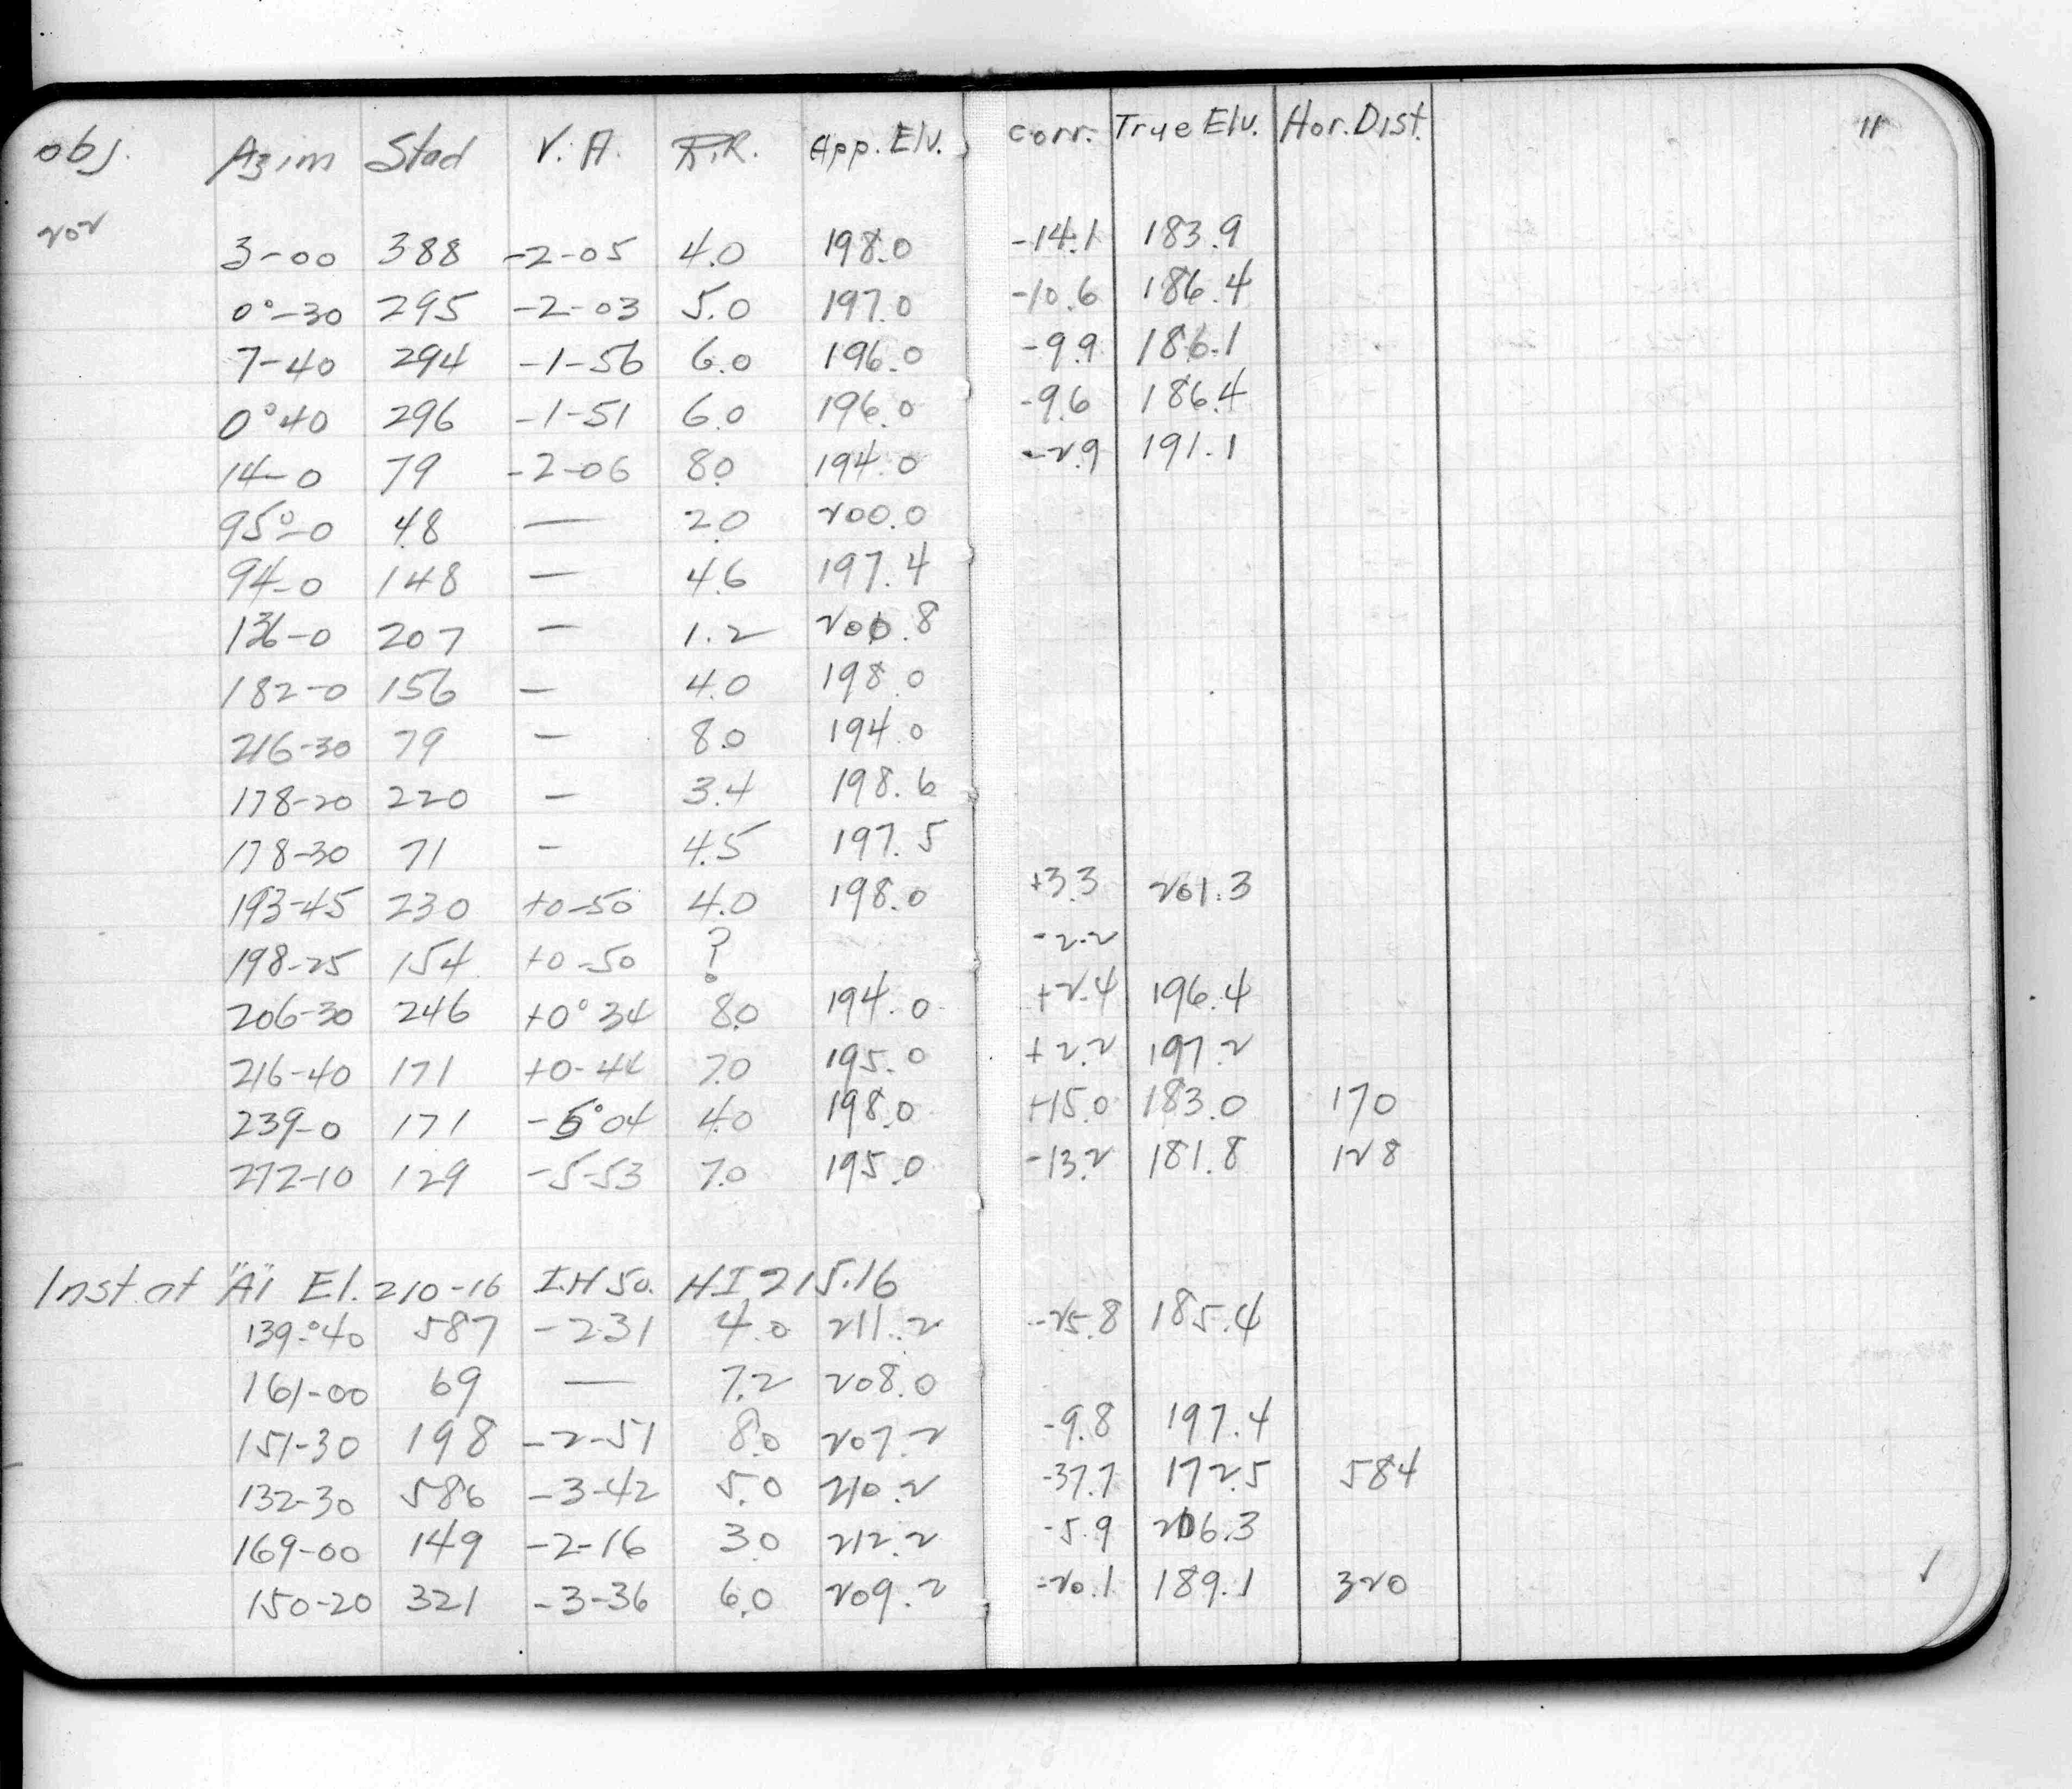 obj. Azim Stad V.A. R.R. App. Elv. corr. True Elv. Hor. Dist. 11
202
3-00 388 -2-05 4.0 198.0 -14.1 183.9
0°-30 295 -2-03 5.0 197.0 -10.6 186.4
7-40 294 -1-56 6.0 196.0 -9.9 186.1
0°40 296 -1-51 6.0 196.0 -9.6 186.4
14-0 79 -2-06 8.0 194.0 -2.9 191.1
95°-0 48 — 2.0 200.0
94-0 148 — 4.6 197.4
136-0 207 — 1.2 200.8
182-0 156 — 4.0 198.0
216-30 79 — 8.0 194.0
178-20 220 — 3.4 198.6
178-30 71 - 4.5 197.5
193-45 230 +0-50 4.0 198.0 +3.3 201.3
198-25 154 +0-50 ? -2.2
206-30 246 +0°34 8.0 194.0 +2.4 196.4
216-40 171 +0-44 7.0 195.0 +2.2 197.2
239-0 171 -5°04 4.0 198.0 +15.0 183.0 170
272-10 129 -5-53 7.0 195.0 -13.2 181.8 128
Inst. at "A1" El. 210-16 I.H 5.0. HI 215.16
139-°40 587 -2-31 4.0 211.2 -25.8 185.4
161-00 69 — 7.2 208.0
151-30 198 -2-51 8.0 207.2 -9.8 197.4
132-30 586 -3-42 5.0 210.2 -37.7 172.5 584
169-00 149 -2-16 3.0 212.2 -5.9 206.3
150-20 321 -3-36 6.0 209.2 -20.1 189.1 320